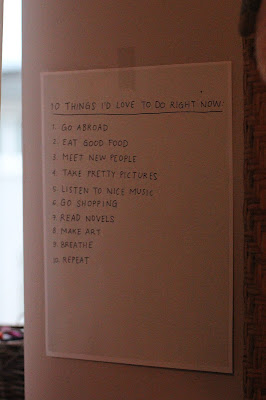 10 THINGS I'D LOVE TO DO RIGHT NOW:
1. GO ABROAD
2. EAT GOOD FOOD
3. MEET NEW PEOPLE
4. TAKE PRETTY PICTURES
5. LISTEN TO NICE MUSIC
6. GO SHOPPING
7. READ NOVELS
8. MAKE ART
9. BREATHE
10. REPEAT